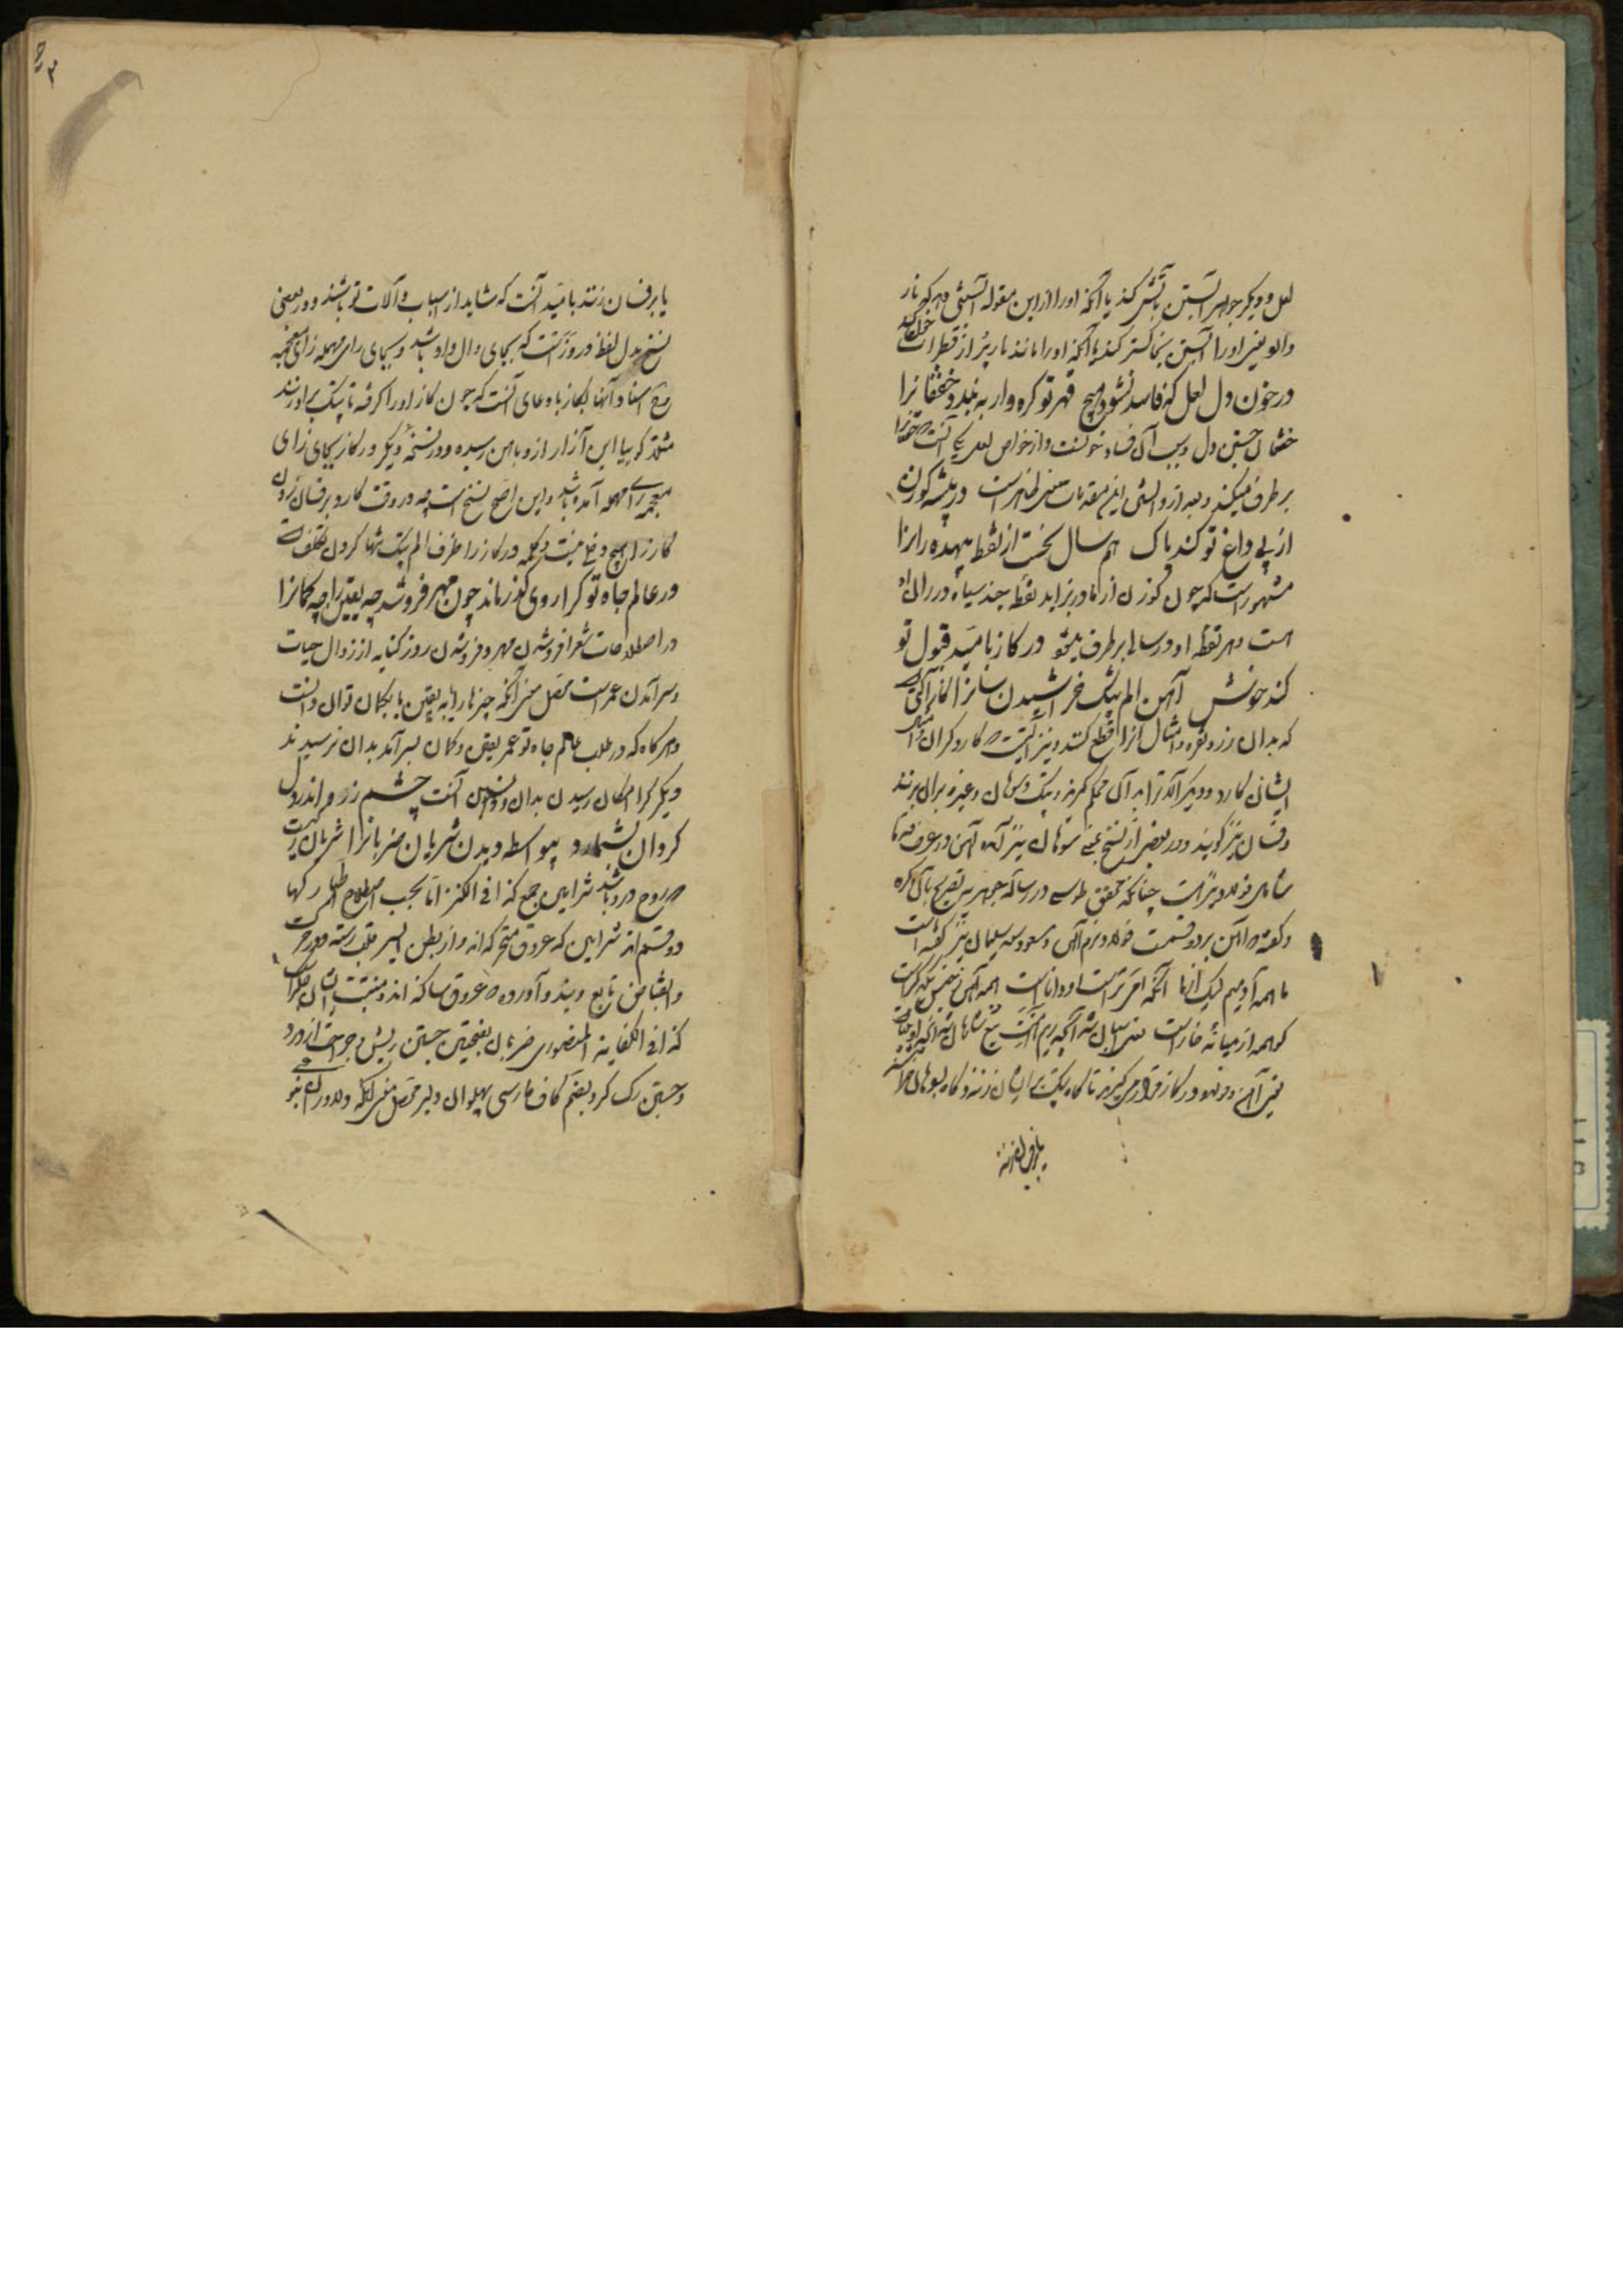 لعل و دیگر جواهر آبستن بآتش کند یا آنکه او را از این مقوله آتشی دهد که نار
و الو یعنی او را آبستن بخاکستر کند یا آنکه او را مانند نار پر از قطرات
در خون دل لعل که فاسد نشود هیچ قهر تو گره وار به بندد خفقانرا
خفقان جستن دل و سبب آن فساد خونست و از خواص لعل یکی آنست که خفقانرا
بر طرف میکند و بعد از دانستن این مقدمات معنی ظاهر است در بیشه گوزنان
از پی داغ تو کند پاک هم سال نخست از نقط بیهده رانرا
مشهور است که چون گوزن از مادر بزاید نقطه چند سیاه در ران او
است و هر نقطه او در سالی بر طرف میشود در گاز بامید قبول تو
کند خوش آهن الم پتک خراشیدن سانرا گاز آلتی
که بدان زر و نقره و امثال آنرا قطع کنند و نیز آلتیست که کاردگران و امثال
ایشان کارد و دیگر آلات را بدان محکم گیرند و پتک و سوهان و غیره بران برند
و فسان نیز گویند و در بعضی از نسخ بجای سوهان نیز آمده آهن در عرف قدما
شامل فولاد نیز است چنانکه محقق طوسی در رساله جوهریه تصریح بآن کرده
و گفته که آهن بر دو قسمت فولاد و نرم آهن و مسعود سعد سلمان نیز گفته است
ما همه آدمیم لیک از ما آنکه امر تر است او داناست همه آهن ز جنس یکدگر است
که همه از میانه خاراست نعل اسبان شد آنچه ریم آهنست تیغ شاهان شد آنچه
یعنی آهن و فولاد در گاز قرار می‌گیرند تا گاه پتک بر ایشان زنند و گاه بسوهان
یا برفسان زنند
یا برفسان زنند بامید آنست که شاید از اسباب و آلات تو باشند و در بعضی
نسخ بدل لفظ در وزنست که بجای دال واو باشد و بجای رای مهمله زای معجمه
و آنها بگاز باد عای آنست که چون گاز او را گرفته تا پتک بر او زنند
مثلا گوییا این آزار از و باهن رسیده و در نسخه دیگر در گاز بجای زای
معجمه رای مهمله آمده باشد و این اصح نسخ است چه در وقت کار و برفسان زدن
گاز را هیچ دخلی نیست و کلمه در گاز را ظرف الم پتک تنها کردن تکلف است
در عالم جاه تو کرا روی گذر ماند چون مهر فروشد چه یقین را چه گمانرا
در اصطلاحات شعرا فروشدن مهر و فروشدن روز کنایه از زوال حیات
و سر آمدن عمر است محصل معنی آنکه چیزها را یا به یقین یا بگمان توان دانست
و هر گاه که در طلب عالم جاه تو عمر یقین و گمان بسر آمد بدان نرسیدند
دیگر کرا امکان رسیدن بدان و دانستن آنست چشم زره اندر دل
گردان بشمارد بی واسطه دیدن شریان ضربانرا شریان رگیست
که روح درو باشد شرایین جمع کذا فی الکنز اما بحسب اصطلاح اطبا رگها
دو قسم اند شرایین که عروق متحرکه اند و از بطن ایسر قلب رسته
تابع ویند و آورده که عروق ساکنه اند و منبت ایشان جگر است
کذا فی الکفایه المنصوری ضربان بفتحتین جستن ریش و جراحت از درد
و جستن رگ گرد بضم کاف فارسی پهلوان و دلیر محصل معنی آنکه